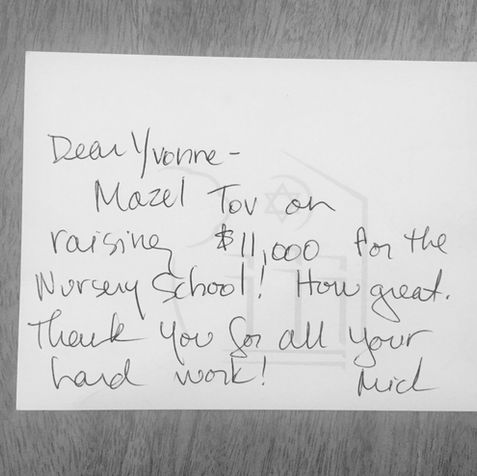 Dear Yvonne-
Mazel Tov on
raising $11,000 for the
Nursery School! How great.
Thank you for all your
hard work!